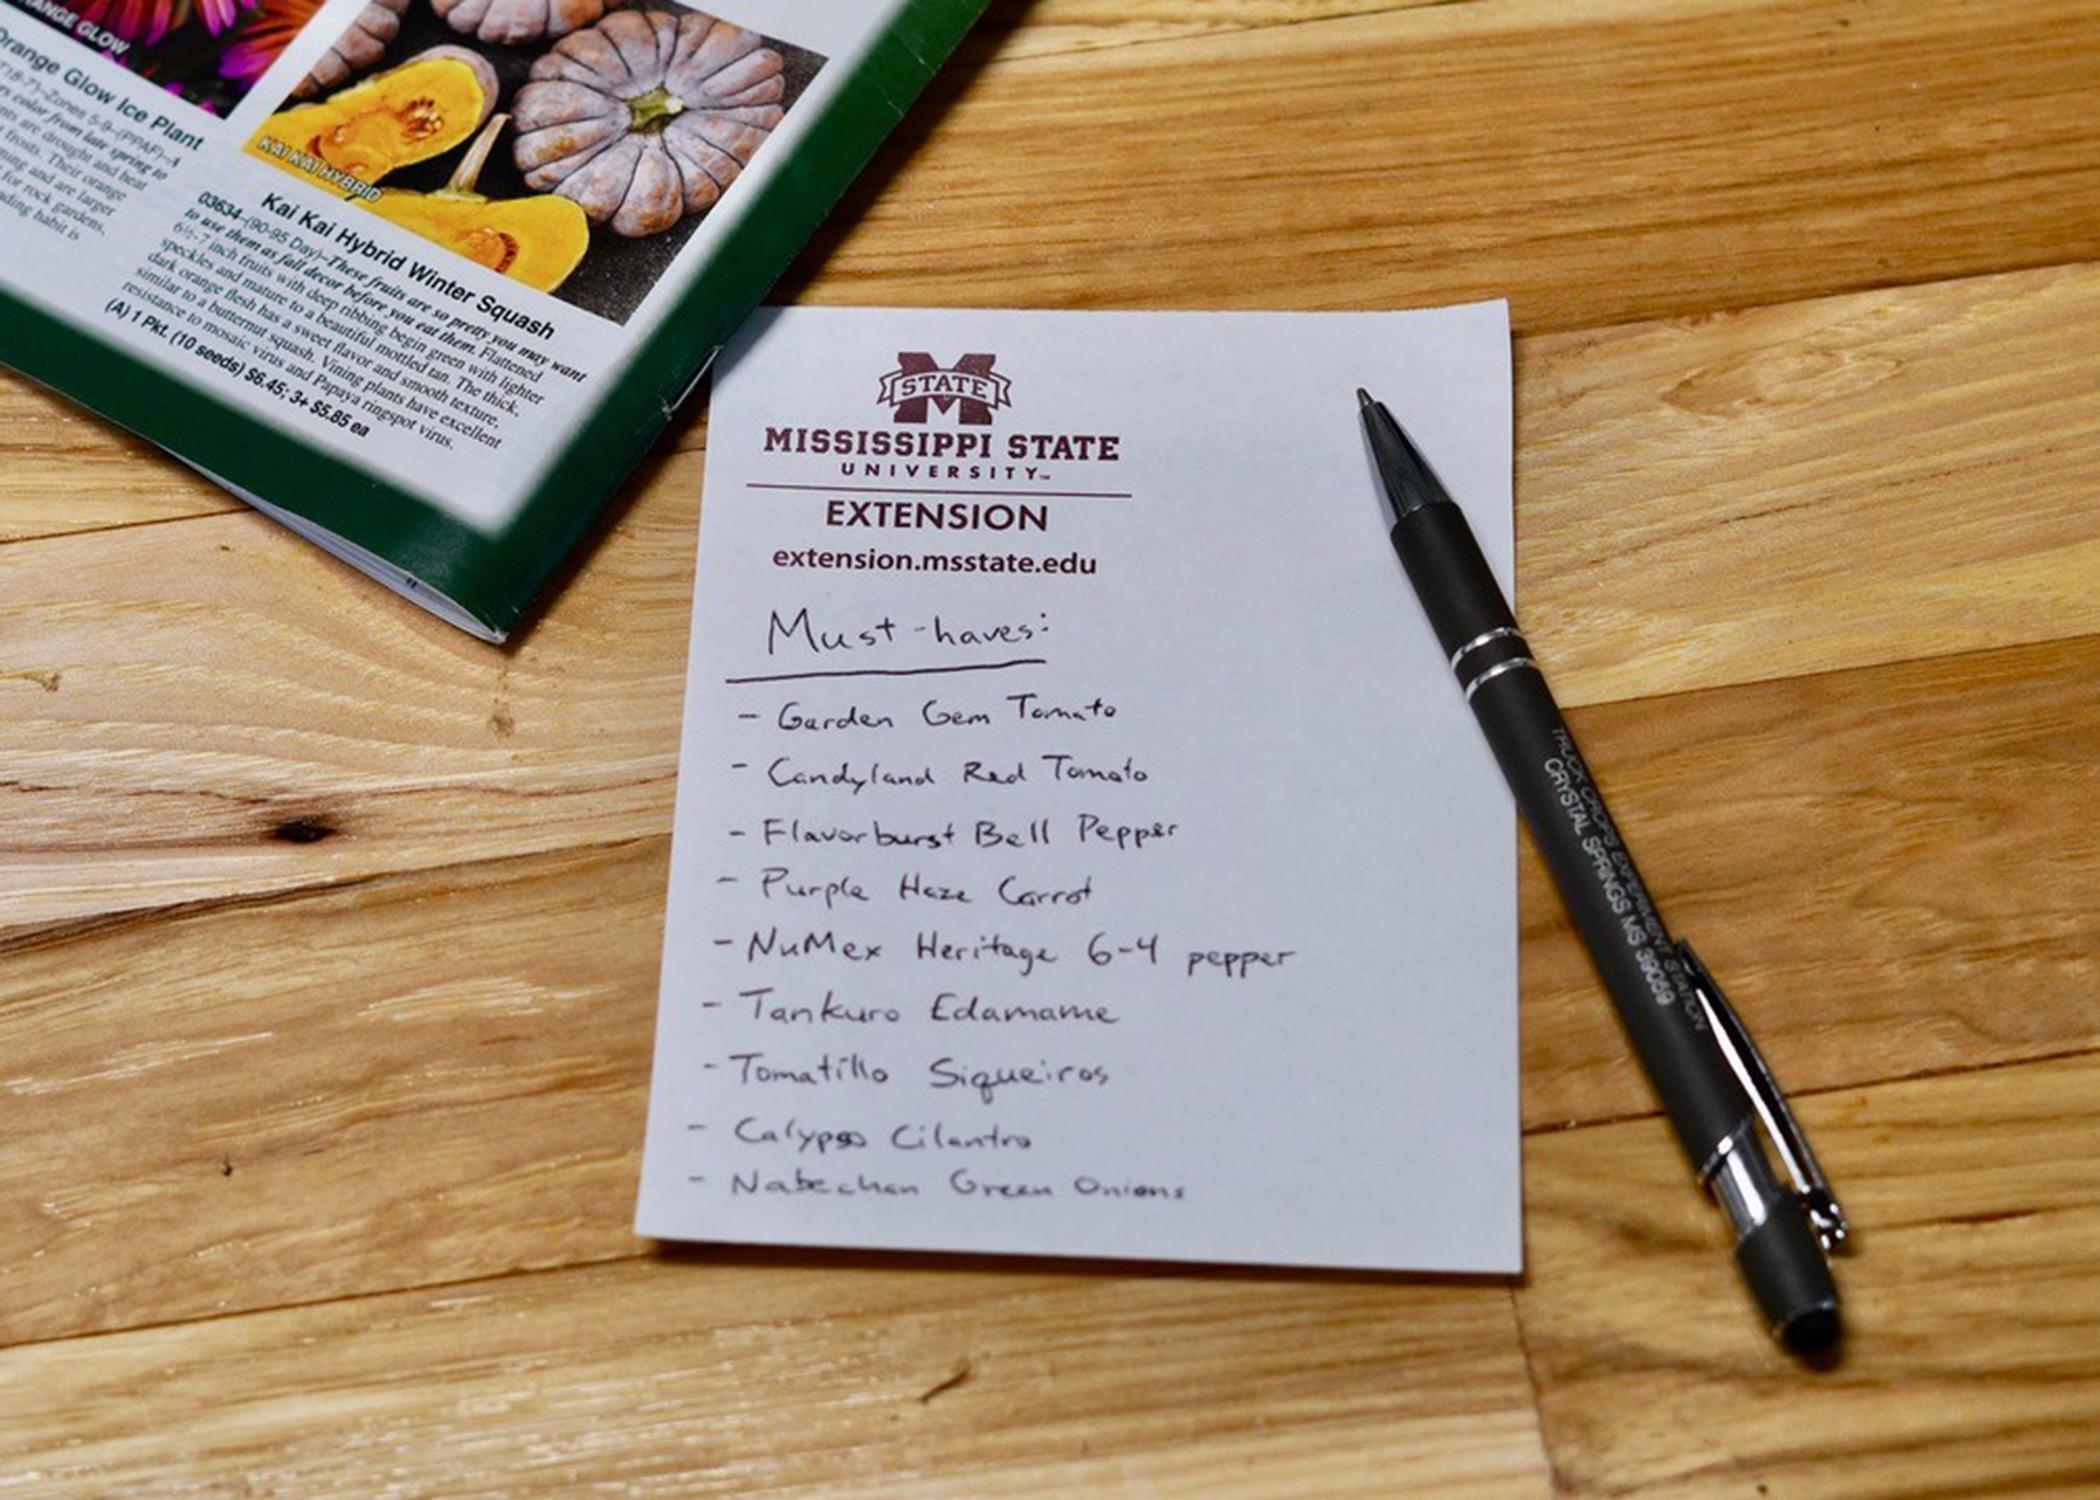 ORANGE GLOW
Orange Glow Ice Plant
Zones 5-9-(PPAF)-A
color from late spring to
are drought and heat
frosts. Their orange
and are larger
for rock gardens,
habit is
KAI KAI HYBRID
Kai Kai Hybrid Winter Squash
03634-(90-95 Day)-These fruits are so pretty you may want
to use them as fall decor before you eat them. Flattened
6½-7 inch fruits with deep ribbing begin green with lighter
speckles and mature to a beautiful mottled tan. The thick,
dark orange flesh has a sweet flavor and smooth texture,
similar to a butternut squash. Vining plants have excellent
resistance to mosaic virus and Papaya ringspot virus.
(A) 1 Pkt. (10 seeds) $6.45; 3+ $5.85 ea
STATE
MISSISSIPPI STATE
UNIVERSITY™
EXTENSION
extension.msstate.edu
Must-haves:
- Garden Gem Tomato
- Candyland Red Tomato
- Flavorburst Bell Pepper
- Purple Haze Carrot
- NuMex Heritage 6-4 pepper
- Tankuro Edamame
- Tomatillo Siqueiros
- Calypso Cilantro
- Nabechan Green Onions
TRUCK CROPS EXPERIMENT STATION
CRYSTAL SPRINGS MS 39059